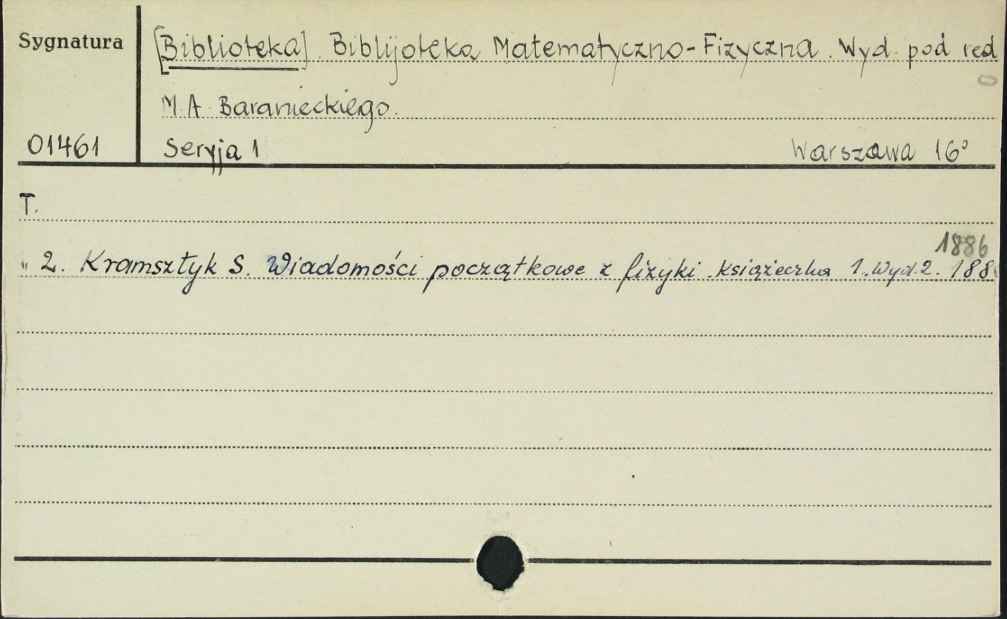 Sygnatura
[Biblioteka]. Biblijoteka Matematyczno-Fizyczna. Wyd. pod red
M. A. Baranieckiego.
01461
Seryja 1
Warszawa 16°
T.
" 2. Kramsztyk S. Wiadomości początkowe z fizyki książeczka 1. Wyd. 2. 188
1886